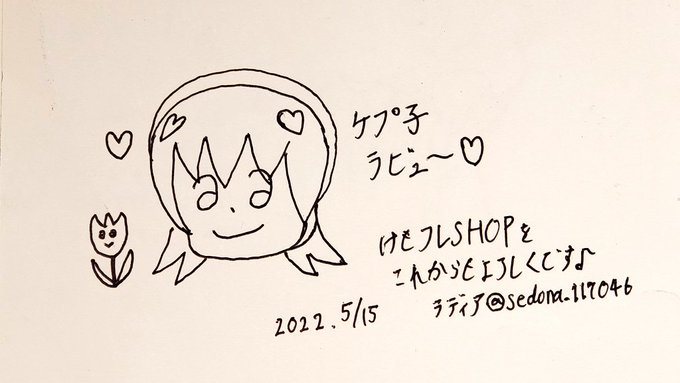 ケプ子
ラビュ〜♡
けもフレSHOPを
これからもよろしくです♪
2022.5/15
ラディア@sedona_117046